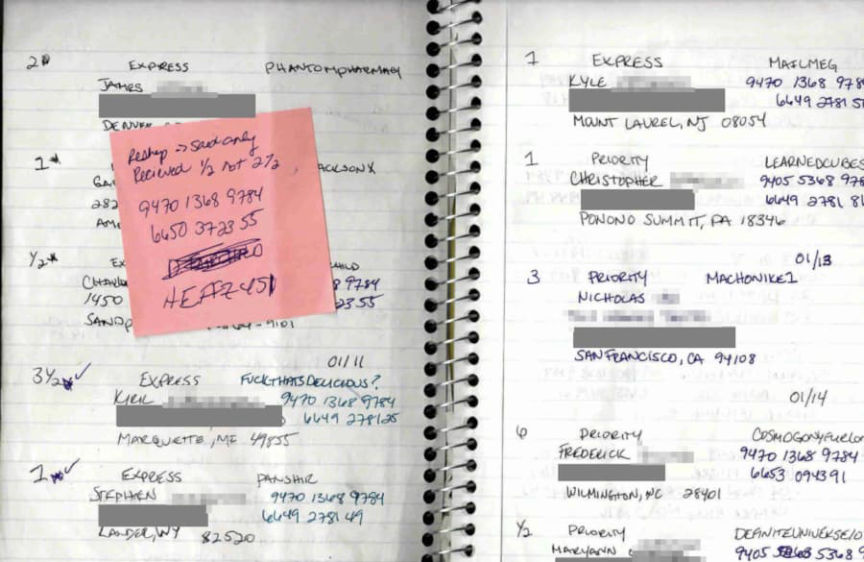 2* EXPRESS PHANTOMPHARMACY
JAMES
DENVER
1* ACKSONX
282
½*
1450
9784
23 55
Reship → said only
Recieved ½ not 2½
9470 1368 9784
6650 3723 55
HEFFZ451
01/11
3½* ✓ EXPRESS FUCKTHATSDELICIOUS?
KIRIL 9470 1368 9784
6649 2781 25
MARQUETTE, MI 49855
1* ✓ EXPRESS PANSHIR
STEPHEN 9470 1368 9784
6649 2781 49
LANDER, WY 82520
1 EXPRESS MAILMEG
KYLE 9470 1368 978
6649 2781 5
MOUNT LAUREL, NJ 08054
1 PRIORITY LEARNEDCUBES
CHRISTOPHER 9405 5368 978
6649 2781 81
PONONO SUMMIT, PA 18346
01/13
3 PRIORITY MACHONIKE1
NICHOLAS
SAN FRANCISCO, CA 94108
01/14
6 PRIORITY
FREDERICK 9470 1368 9784
6653 0943 91
WILMINGTON, NC 28401
½ PRIORITY DEFINITEUNIVERSE10
MARYANN 9405 5368 9